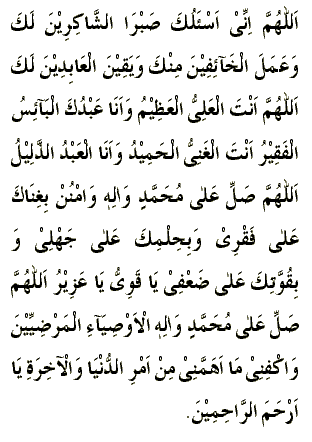 اَللّٰهُمَّ اِنِّیْ اَسْئَلُكَ صَبْرَا الشَّاكِرِیْنَ لَكَ
وَعَمَلَ الْخَآئِفِیْنَ مِنْكَ وَیَقِیْنَ الْعَابِدِیْنَ لَكَ
اَللّٰهُمَّ اَنْتَ الْعَلِیُّ الْعَظِیْمُ وَاَنَا عَبْدُكَ الْبَآئِسُ
الْفَقِیْرُ اَنْتَ الْغَنِیُّ الْحَمِیْدُ وَاَنَا الْعَبْدُ الذَّلِیْلُ
اَللّٰهُمَّ صَلِّ عَلٰی مُحَمَّدٍ وَاٰلِهٖ وَامْنُنْ بِغِنَاكَ
عَلٰی فَقْرِیْ وَبِحِلْمِكَ عَلٰی جَهْلِیْ وَ
بِقُوَّتِكَ عَلٰی ضَعْفِیْ یَا قَوِیُّ یَا عَزِیْزُ اَللّٰهُمَّ
صَلِّ عَلٰی مُحَمَّدٍ وَاٰلِهِ الْاَوْصِیَآءِ الْمَرْضِیِّیْنَ
وَاكْفِنِیْ مَا اَهَمَّنِیْ مِنْ اَمْرِ الدُّنْیَا وَالْاٰخِرَةِ یَا
اَرْحَمَ الرَّاحِمِیْنَ.